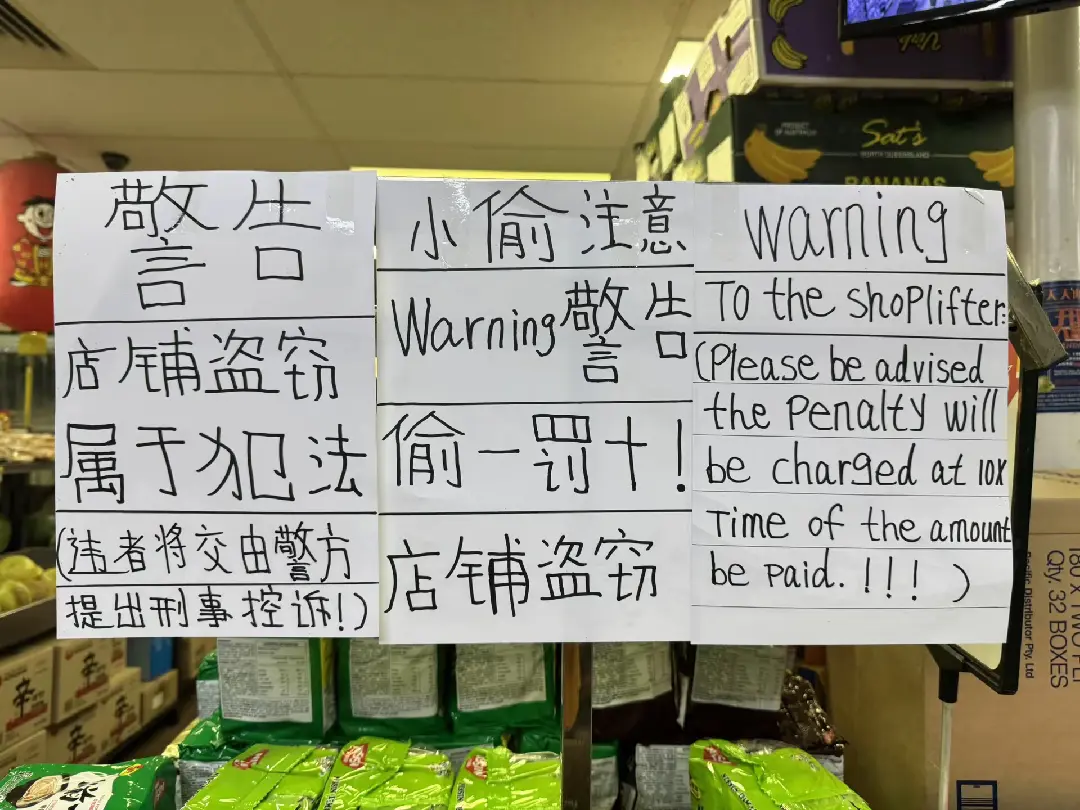 警告
店铺盗窃
属于犯法
(违者将交由警方
提出刑事控诉!)
小偷注意
Warning 警告
偷一罚十!
店铺盗窃
Warning
To the shoplifter:
(Please be advised
the penalty will
be charged at 10x
Time of the amount
be paid.!!!)
PRODUCT
OF AUSTRALIA
Sat's
NORTH QUEENSLAND
BANANAS
180 x TWO PE
Qty. 32 BOXES
Pacific Distributor Pty. Ltd
辛
辛